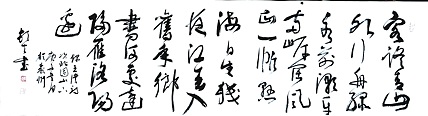 客路青山
外行舟綠
水前潮平
兩岸闊風
正一帆懸
海日生殘
夜江春入
舊年鄉
書何處達
歸雁洛陽
邊
次北固山下